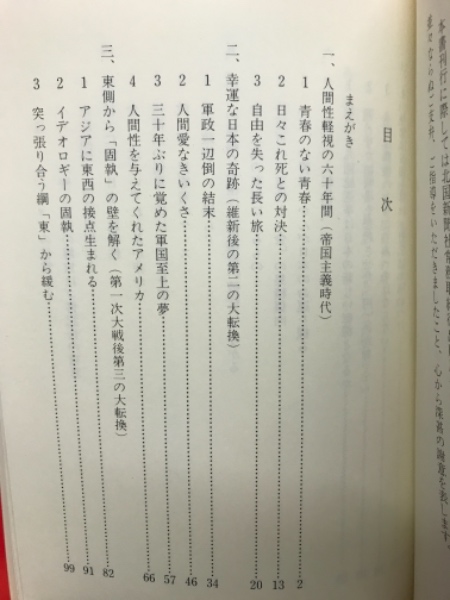 本書刊行に際しては北国新聞社
ご指導をいただきましたこと、心から深甚の謝意を表します。
目次
まえがき
一、人間性軽視の六十年間（帝国主義時代）
1 青春のない青春 2
2 日々これ死との対決 13
3 自由を失った長い旅 20
二、幸運な日本の奇跡（維新後の第二の大転換）
1 軍政一辺倒の結末 34
2 人間愛なきいくさ 46
3 三十年ぶりに覚めた軍国至上の夢 57
4 人間性を与えてくれたアメリカ 66
三、東側から「固執」の壁を解く（第一次大戦後第三の大転換）
1 アジアに東西の接点生まれる 82
2 イデオロギーの固執 91
3 突っ張り合う綱「東」から緩む 99